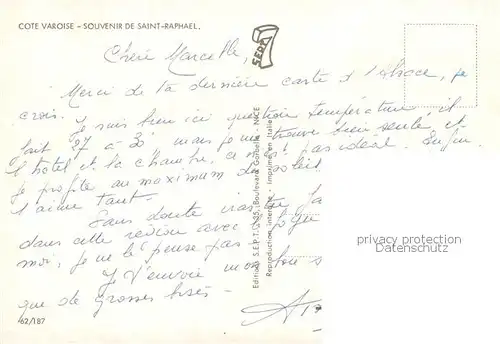 COTE VAROISE - SOUVENIR DE SAINT-RAPHAEL.
S.E.P.T.
Chère Marcelle,
Merci de la dernière carte d'Alsace, je
crois. Je suis bien ici question température, il
fait 27 à 30° mais je me trouve bien seule et
l'hôtel et la chambre, ce n'est pas idéal. Enfin
je profite au maximum du soleil
j'aime tant.
Sans doute iras-tu
dans cette région avec
moi, je ne le pense pas
Je t'envoie mon bon s
que de grosses bises -
Editions S.E.P.T. 35, Boulevard Gorbella - NICE
Reproduction interdite - Imprimé en Italie
62/187
privacy protection
Datenschutz